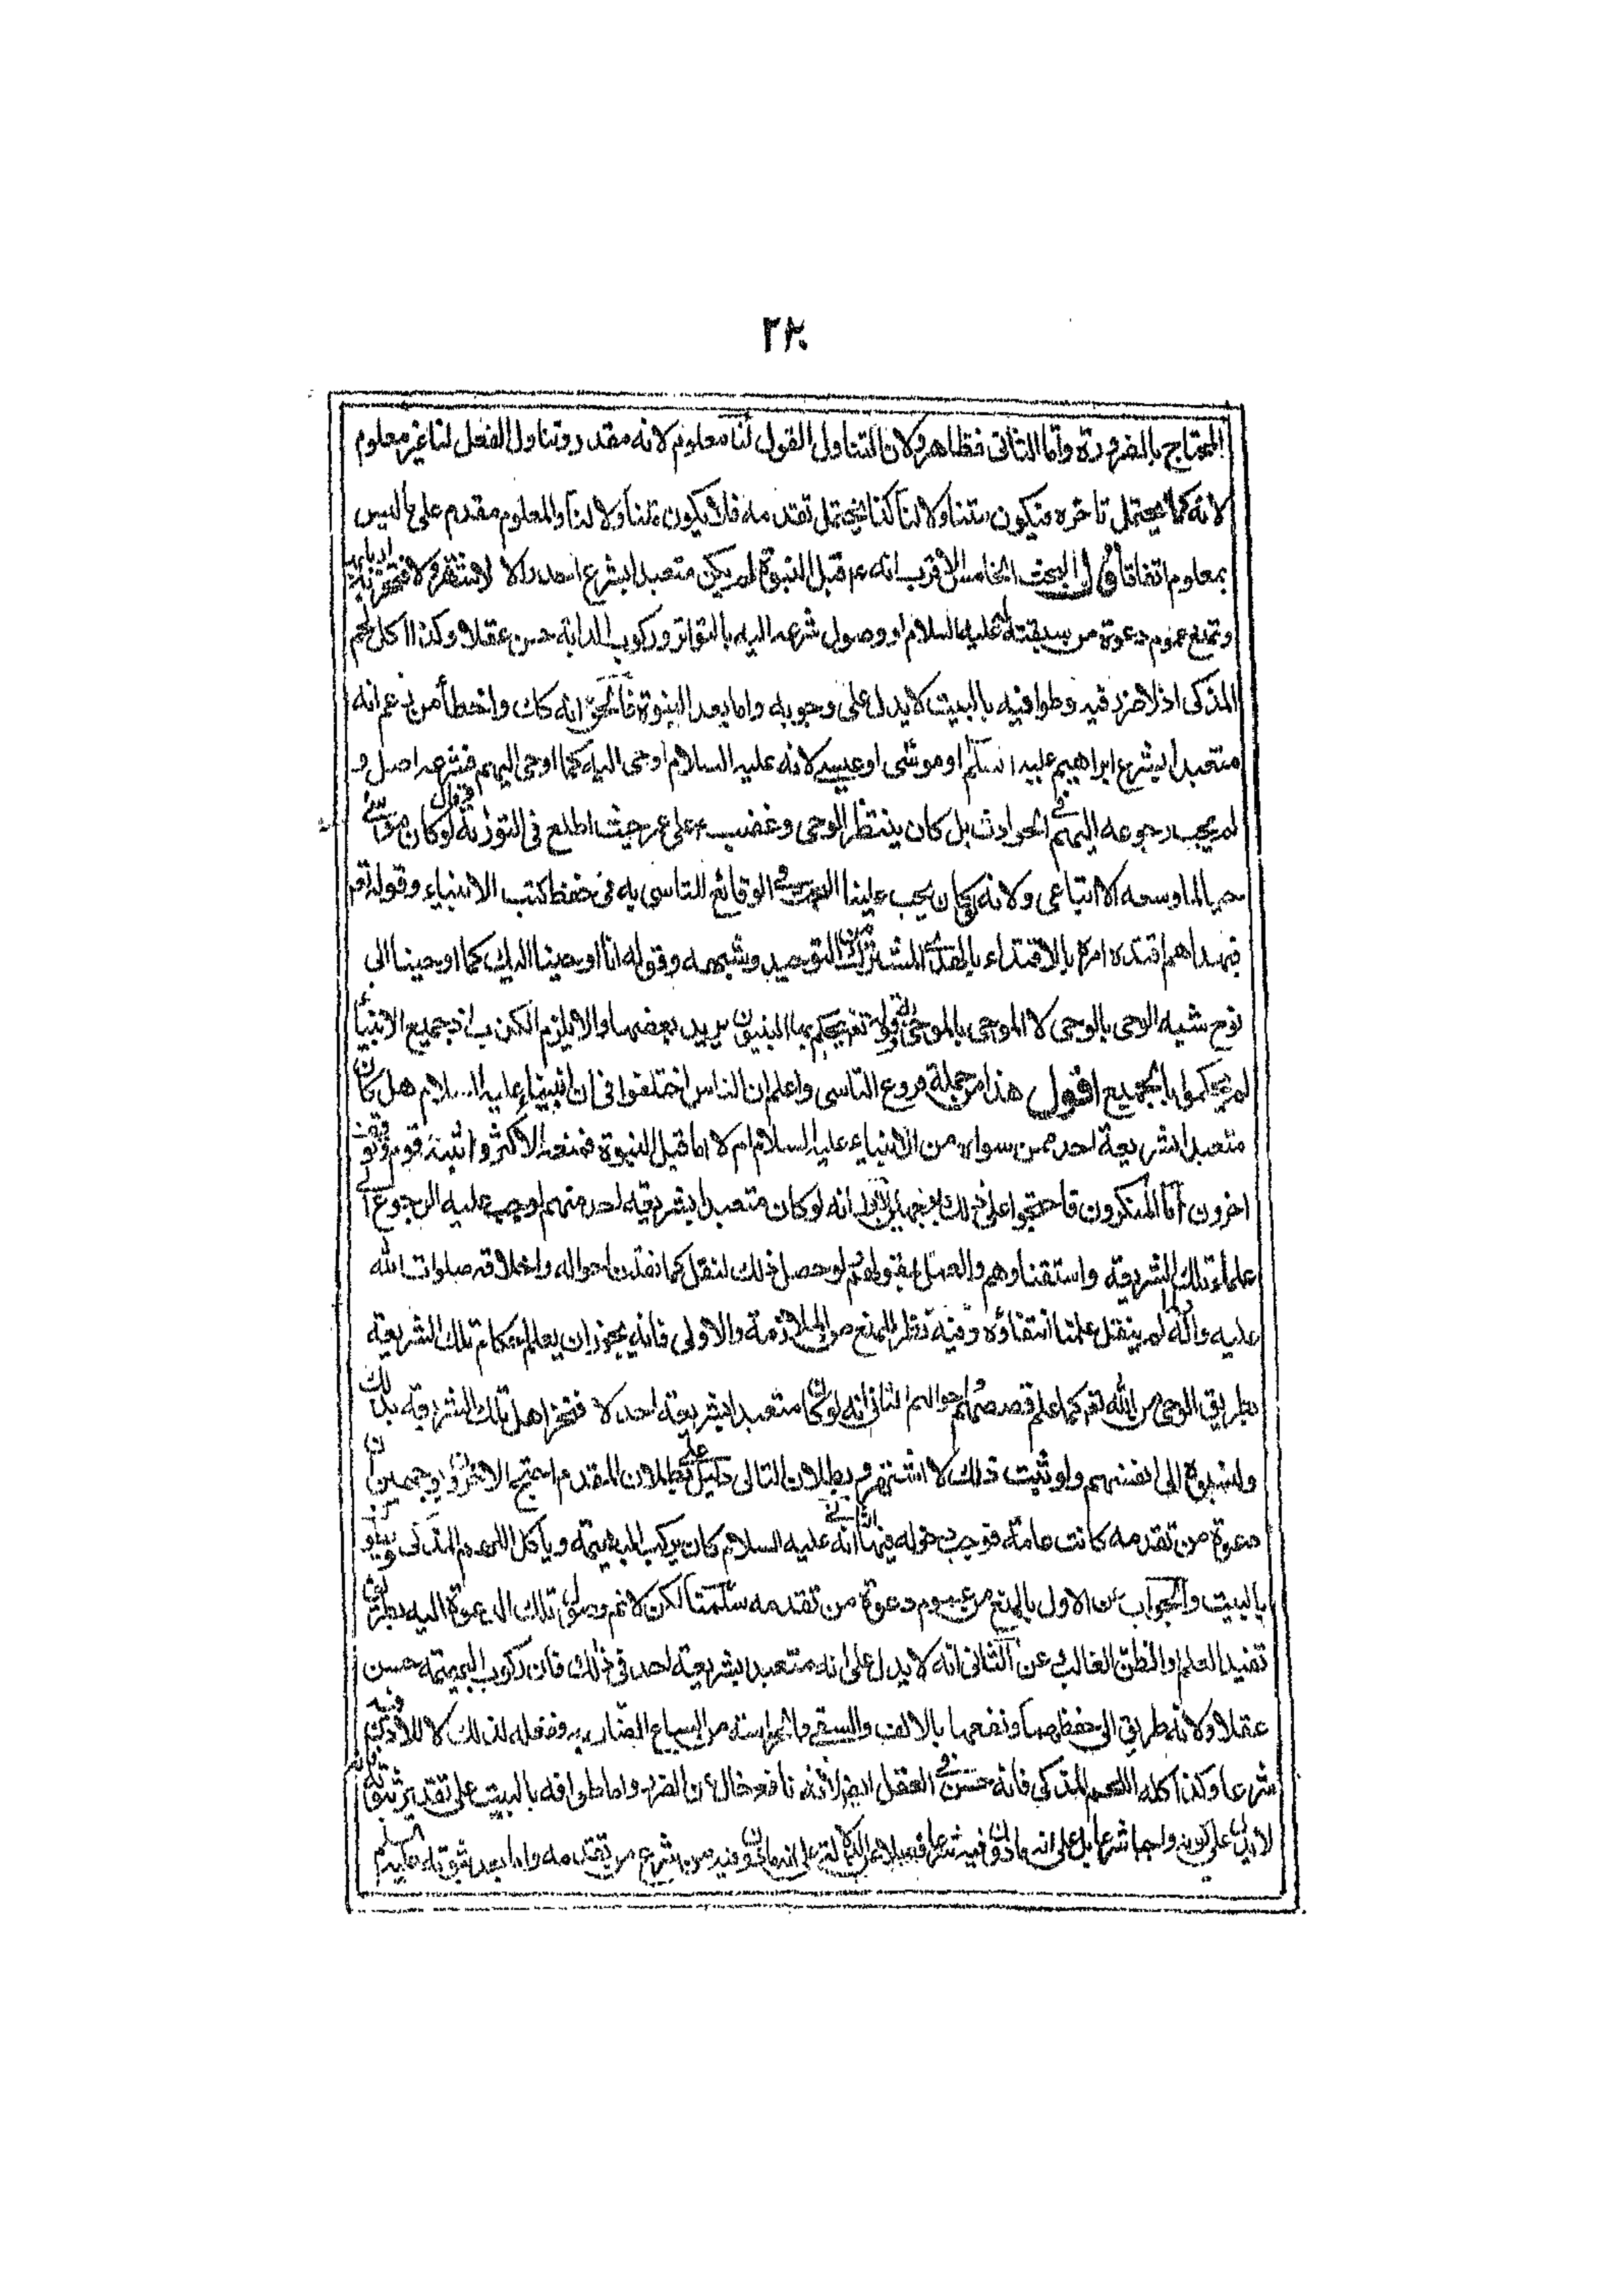 ٢٢٠
المحتاج بالضرورة واما الثانى فظاهر ولان التناول القول لنا معلوم لانه مقدر وتناول الفعل لنا غير معلوم
لانه كما يحتمل تاخره فيكون متناولا لنا كذا يحتمل تقدمه فلا يكون متناولا لنا والمعلوم مقدم على ما ليس
بمعلوم اتفاقا قال البحث الخامس الاقرب انه ع قبل النبوة لم يكن متعبدا بشرع احد والا لاشتهر ولافتخر به
ونمنع عموم دعوة من سبقه عليه السلام او وصول شرعه اليه بالتواتر وركوب الدابة حسن عقلا وكذا اكل لحم
المذكى اذ لا ضرر فيه وطوافه بالبيت لا يدل على وجوبه واما بعد النبوة فالحق انه كك واخطأ من زعم انه
متعبد بشرع ابراهيم عليه السلم او موسى او عيسى لانه عليه السلام اوحى اليه كما اوحى اليهم فشرعه اصل و
لم يجب رجوعه اليهم فى الحوادث بل كان ينتظر الوحى وغضب ع على عمر حيث اطلع فى التورية وقال لو كان موسى
حيا لما وسعه الا اتباعى ولانه لكان يجب علينا الوقائع للتاسى به فى حفظ كتب الانبياء وقوله تعر
فبهداهم اقتده امره بالاقتداء بالهدى المشترك التوحيد وشبهه وقوله انا اوحينا اليك كما اوحينا الى
نوح شبه الوحى بالوحى لا الموحى بالموحى وقوله تعر يحكم بها النبيون يريد بعضها والا لزم الكذب اذ جميع الانبياء
لم يحكموا بالجميع اقول هذا من جملة فروع التاسى واعلم ان الناس اختلفوا فى ان نبينا عليه السلام هل كان
متعبدا بشريعة احد ممن سواه من الانبياء عليه السلام ام لا اما قبل النبوة فمنعه الاكثر واثبته قوم وتوقف
اخرون اما المنكرون فاحتجوا على ذلك بوجهين الاول انه لو كان متعبدا بشريعة احد منهم لوجب عليه الرجوع الى
علماء تلك الشريعة واستفتاوهم والعمل بفتواهم ولو حصل ذلك لنقل كما نقلت احواله واخلاقه صلوات الله
عليه واله ولما لم ينقل علمنا انتفاؤه وفيه نظر للمنع من الملازمة والاولى فانه يجوز ان يعلم احكام تلك الشريعة
بطريق الوحى من الله تعر كما علم قصصهم واحوالهم الثانى انه لو كان متعبدا بشريعة احد لافتخر اهل تلك الشريعة بذلك
ولنسبوه الى انفسهم ولو ثبت ذلك لاشتهر وبطلان التالى دليل على بطلان المقدم احتج الاخرون بوجهين ا ن
دعوة من تقدمه كانت عامة فوجب دخوله فيها الثانى انه عليه السلام كان يركب البهيمة وياكل اللحم المذكى ويطوف
بالبيت والجواب عن الاول بالمنع من عموم دعوة من تقدمه سلمنا لكن لانم وصول تلك الدعوة اليه بطريق
تفيد العلم او الظن الغالب وعن الثانى انه لا يدل على انه متعبد بشريعة احد فى ذلك فان ركوب البهيمة حسن
عقلا ولانه طريق الى حفظها ونفعها بالالف والسقى والحراسة من السباع الضاربه وفعله لذلك لا للاذن فيه
شرعا وكذا اكله اللحم المذكى فانه حسن فى العقل ايضا لانه نافع خال عن الضرر واما طوافه بالبيت على تقدير ثبوته فانه
لا يدل على كونه واجبا شرعا بل على انه ماذون فيه شرعا فضلا عن الدلالة على انه ماذون فيه من شرع من تقدمه واما بعد ثبوته عليه السلم